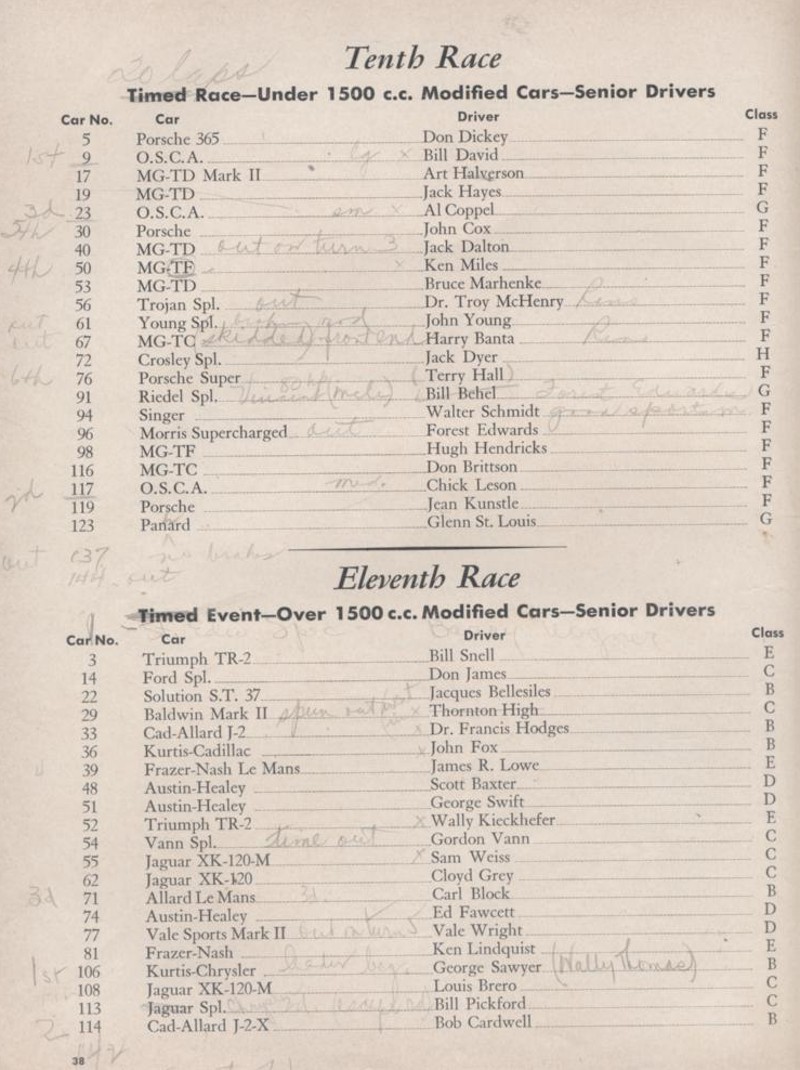 20 laps
Tenth Race
Timed Race—Under 1500 c.c. Modified Cars—Senior Drivers
Car No. Car Driver Class
5 Porsche 365 Don Dickey F
1st 9 O.S.C.A. lg x Bill David F
17 MG-TD Mark II Art Halverson F
19 MG-TD Jack Hayes F
3d 23 O.S.C.A. sm x Al Coppel G
5th 30 Porsche John Cox F
40 MG-TD out on turn 3 Jack Dalton F
4th 50 MG-TF x Ken Miles F
53 MG-TD Bruce Marhenke F
56 Trojan Spl. out Dr. Troy McHenry F
out 61 Young Spl. John Young F
out 67 MG-TC skidded front end Harry Banta F
72 Crosley Spl. Jack Dyer H
6th 76 Porsche Super (Terry Hall) F
91 Riedel Spl. Vincent Bill Behel Forest Edwards G
94 Singer Walter Schmidt good sport F
96 Morris Supercharged out Forest Edwards F
98 MG-TF Hugh Hendricks F
116 MG-TC Don Brittson F
2d 117 O.S.C.A. med. Chick Leson F
119 Porsche Jean Kunstle F
123 Panard Glenn St. Louis G
out 137 no brakes
144 out
Eleventh Race
Timed Event—Over 1500 c.c. Modified Cars—Senior Drivers
Car No. Car Driver Class
3 Triumph TR-2 Bill Snell E
14 Ford Spl. Don James C
22 Solution S.T. 37 Jacques Bellesiles B
29 Baldwin Mark II spun out x Thornton High C
33 Cad-Allard J-2 x Dr. Francis Hodges B
36 Kurtis-Cadillac x John Fox B
39 Frazer-Nash Le Mans James R. Lowe E
48 Austin-Healey Scott Baxter D
51 Austin-Healey George Swift D
52 Triumph TR-2 x Wally Kieckhefer E
54 Vann Spl. time out Gordon Vann C
55 Jaguar XK-120-M x Sam Weiss C
62 Jaguar XK-120 Cloyd Grey C
3d 71 Allard Le Mans 3d. Carl Block B
74 Austin-Healey Ed Fawcett D
77 Vale Sports Mark II out on turn 5 Vale Wright D
81 Frazer-Nash Ken Lindquist E
1st 106 Kurtis-Chrysler George Sawyer (Wally Thomas) B
108 Jaguar XK-120-M Louis Brero C
113 Jaguar Spl. Bill Pickford C
2 114 Cad-Allard J-2-X Bob Cardwell B
38